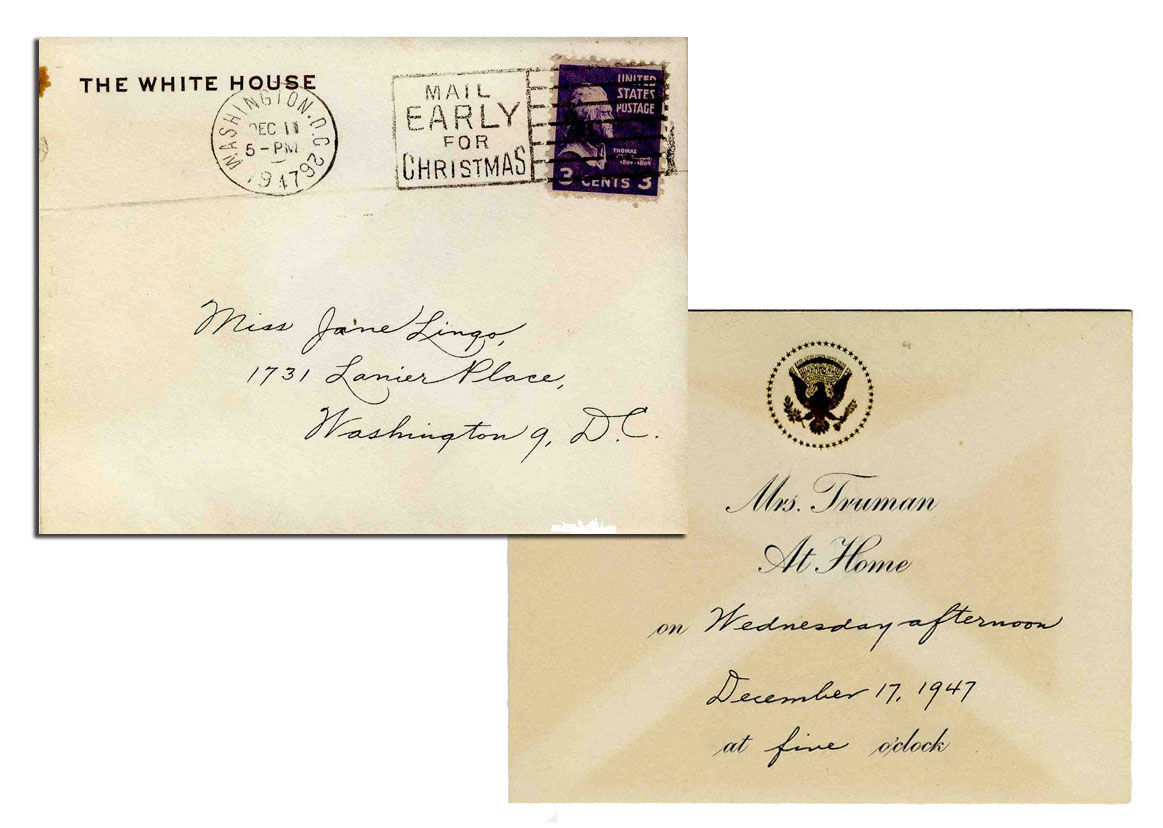 THE WHITE HOUSE
WASHINGTON, D.C. 26
DEC 11
5-PM
1947
MAIL
EARLY
FOR
CHRISTMAS
UNITED
STATES
POSTAGE
THOMAS
1801-1809
3 CENTS 3
Miss Jane Lingo,
1731 Lanier Place,
Washington 9, D.C.
Mrs. Truman
At Home
on Wednesday afternoon
December 17, 1947
at five o'clock